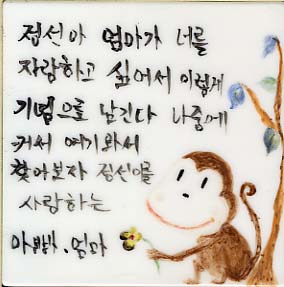 정선아 엄마가 너를
자랑하고 싶어서 이렇게
기념으로 남긴다 나중에
커서 여기와서
찾아보자 정선이를
사랑하는
아빠.엄마